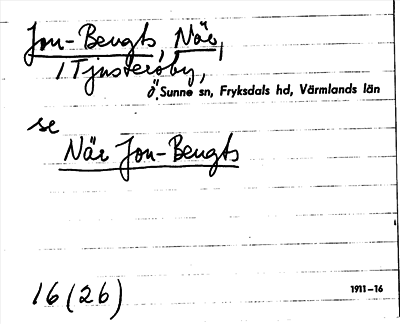 Jon-Bengts, När,
i Tjusteröby,
ö. Sunne sn, Fryksdals hd, Värmlands län
se
När Jon-Bengts
16(26)
1911-16